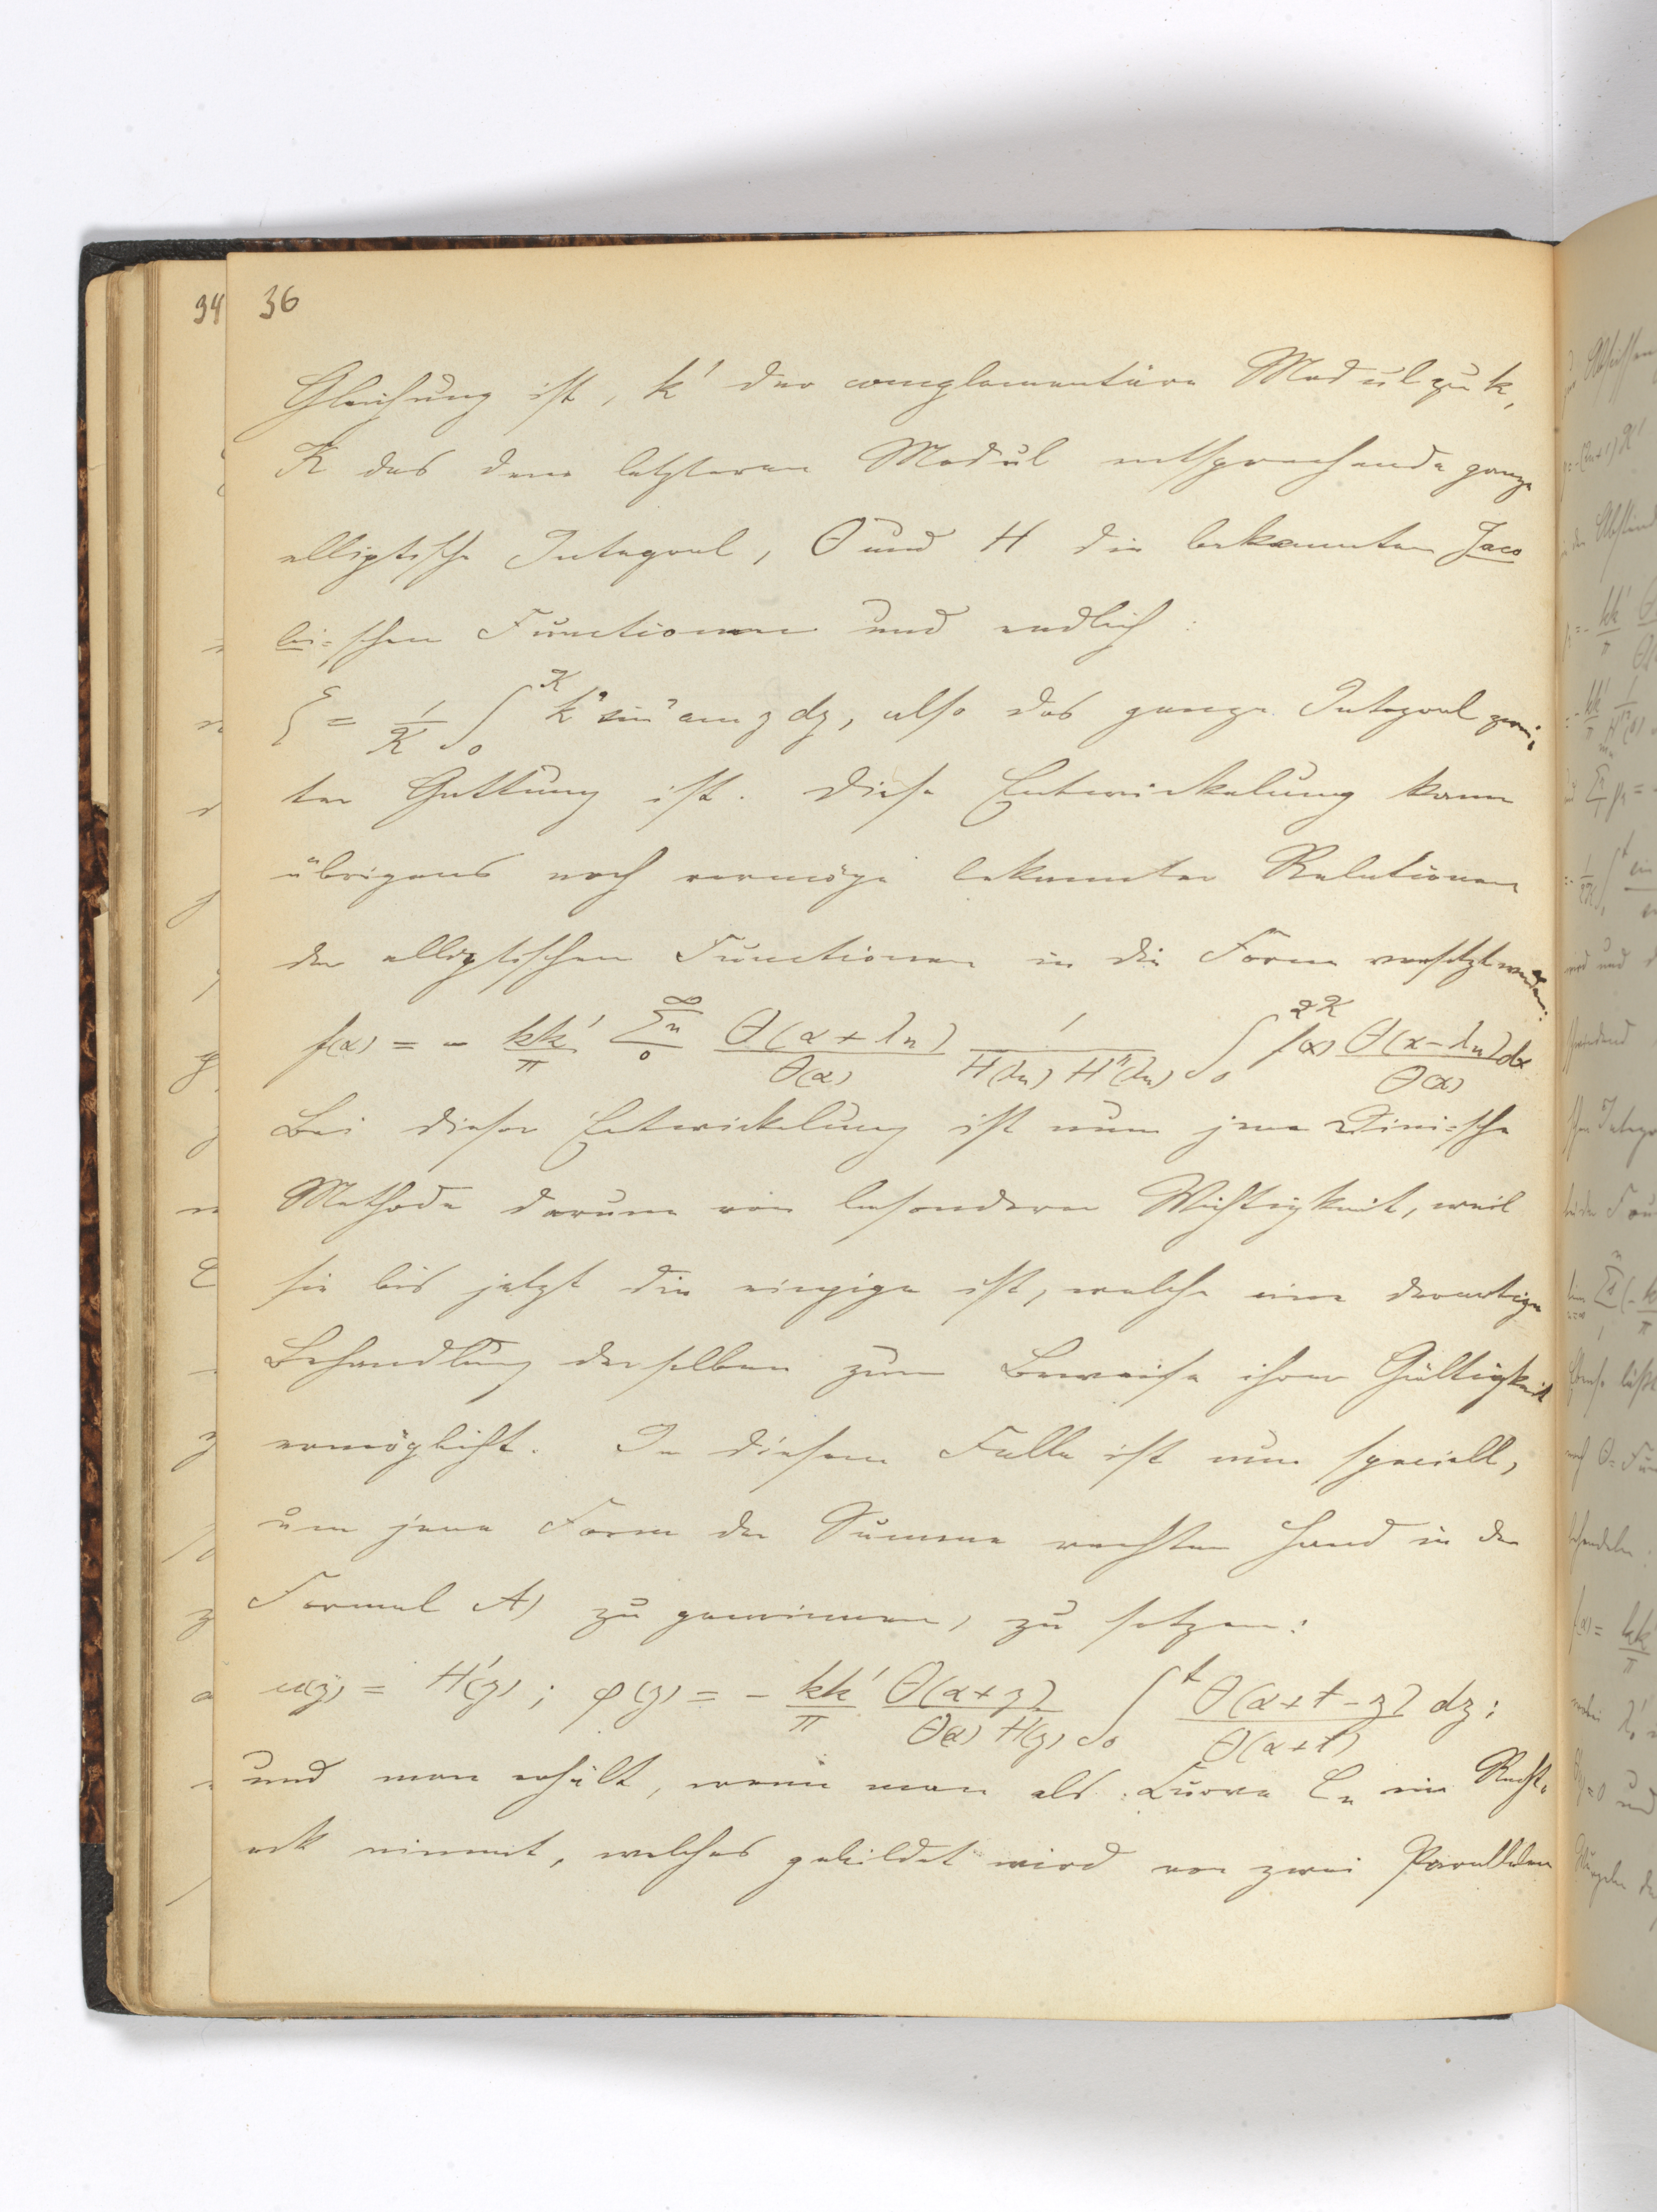 34 36
Gleichung ist, k' der complementäre Modul zu k,
K das dem letzteren Modul entsprechende ganze
elliptische Integral, Θ und H die bekannten Jaco
bi-schen Functionen und endlich:
ξ = 1/K ∫₀ᴷ k² sin² am z dz, also das ganze Integral zwei-
ter Gattung ist. Diese Entwickelung kann
übrigens noch vermöge bekannter Relationen
der elliptischen Functionen in die Form versetzt werden:
f(α) = - kk'/π Σₙ₀^∞ Θ(α+λₙ)/Θ(α) 1/(H(λₙ) H''(λₙ)) ∫₀^2K f(x) Θ(x-λₙ)dx/Θ(x)
Bei dieser Entwickelung ist nun jene Dini-sche
Methode darum von besonderer Wichtigkeit, weil
sie bis jetzt die einzige ist, welche eine derartige
Behandlung derselben zum Beweise ihrer Gültigkeit
ermöglicht. In diesem Falle ist nun speciell,
um jene Form der Summe rechter Hand in der
Formel A) zu gewinnen, zu setzen:
w(z) = H'(z); φ(z) = - kk'/π Θ(α+z)/(Θ(α) H(z)) ∫₀ᵗ Θ(α+t-z)/Θ(α+t) dz;
und man erhält, wenn man als Curve Cₙ ein Recht-
eck nimmt, welches gebildet wird von zwei Parallelen